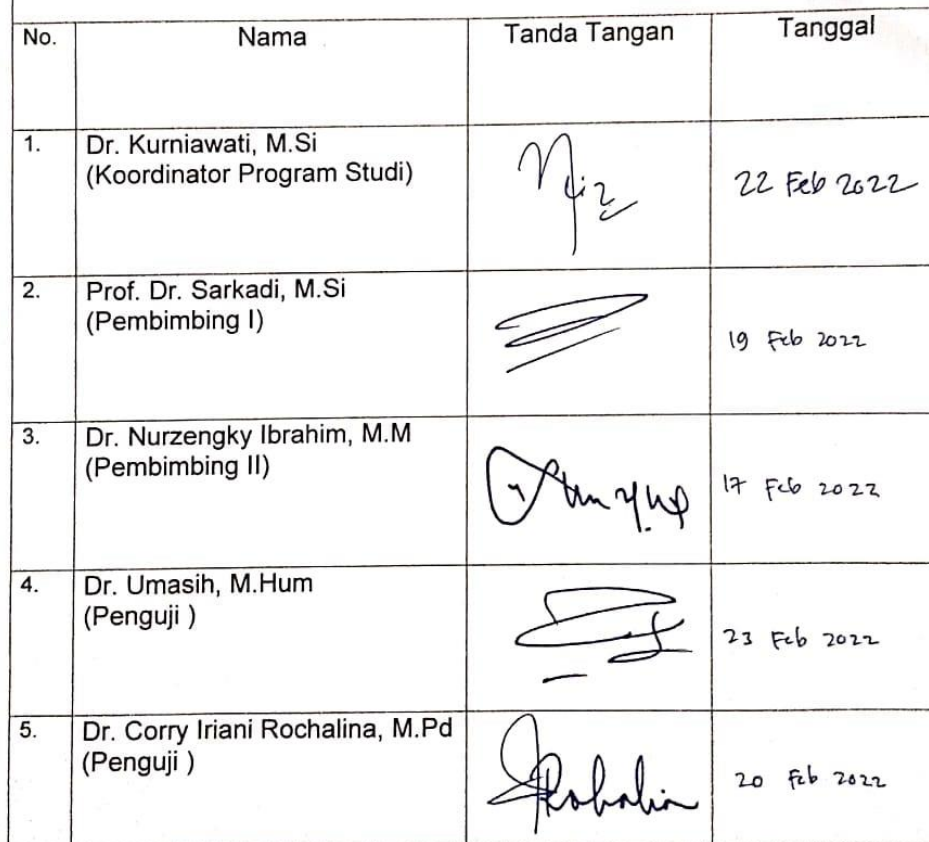 No. Nama Tanda Tangan Tanggal
1. Dr. Kurniawati, M.Si
(Koordinator Program Studi)
22 Feb 2022
2. Prof. Dr. Sarkadi, M.Si
(Pembimbing I)
19 Feb 2022
3. Dr. Nurzengky Ibrahim, M.M
(Pembimbing II)
17 Feb 2022
4. Dr. Umasih, M.Hum
(Penguji )
23 Feb 2022
5. Dr. Corry Iriani Rochalina, M.Pd
(Penguji )
20 Feb 2022